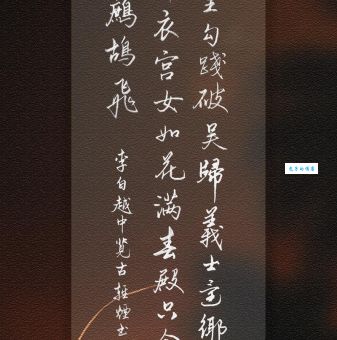 王勾踐破吳歸義士還鄉
衣宮女如花滿春殿只今
鷓鴣飛
李白越中览古